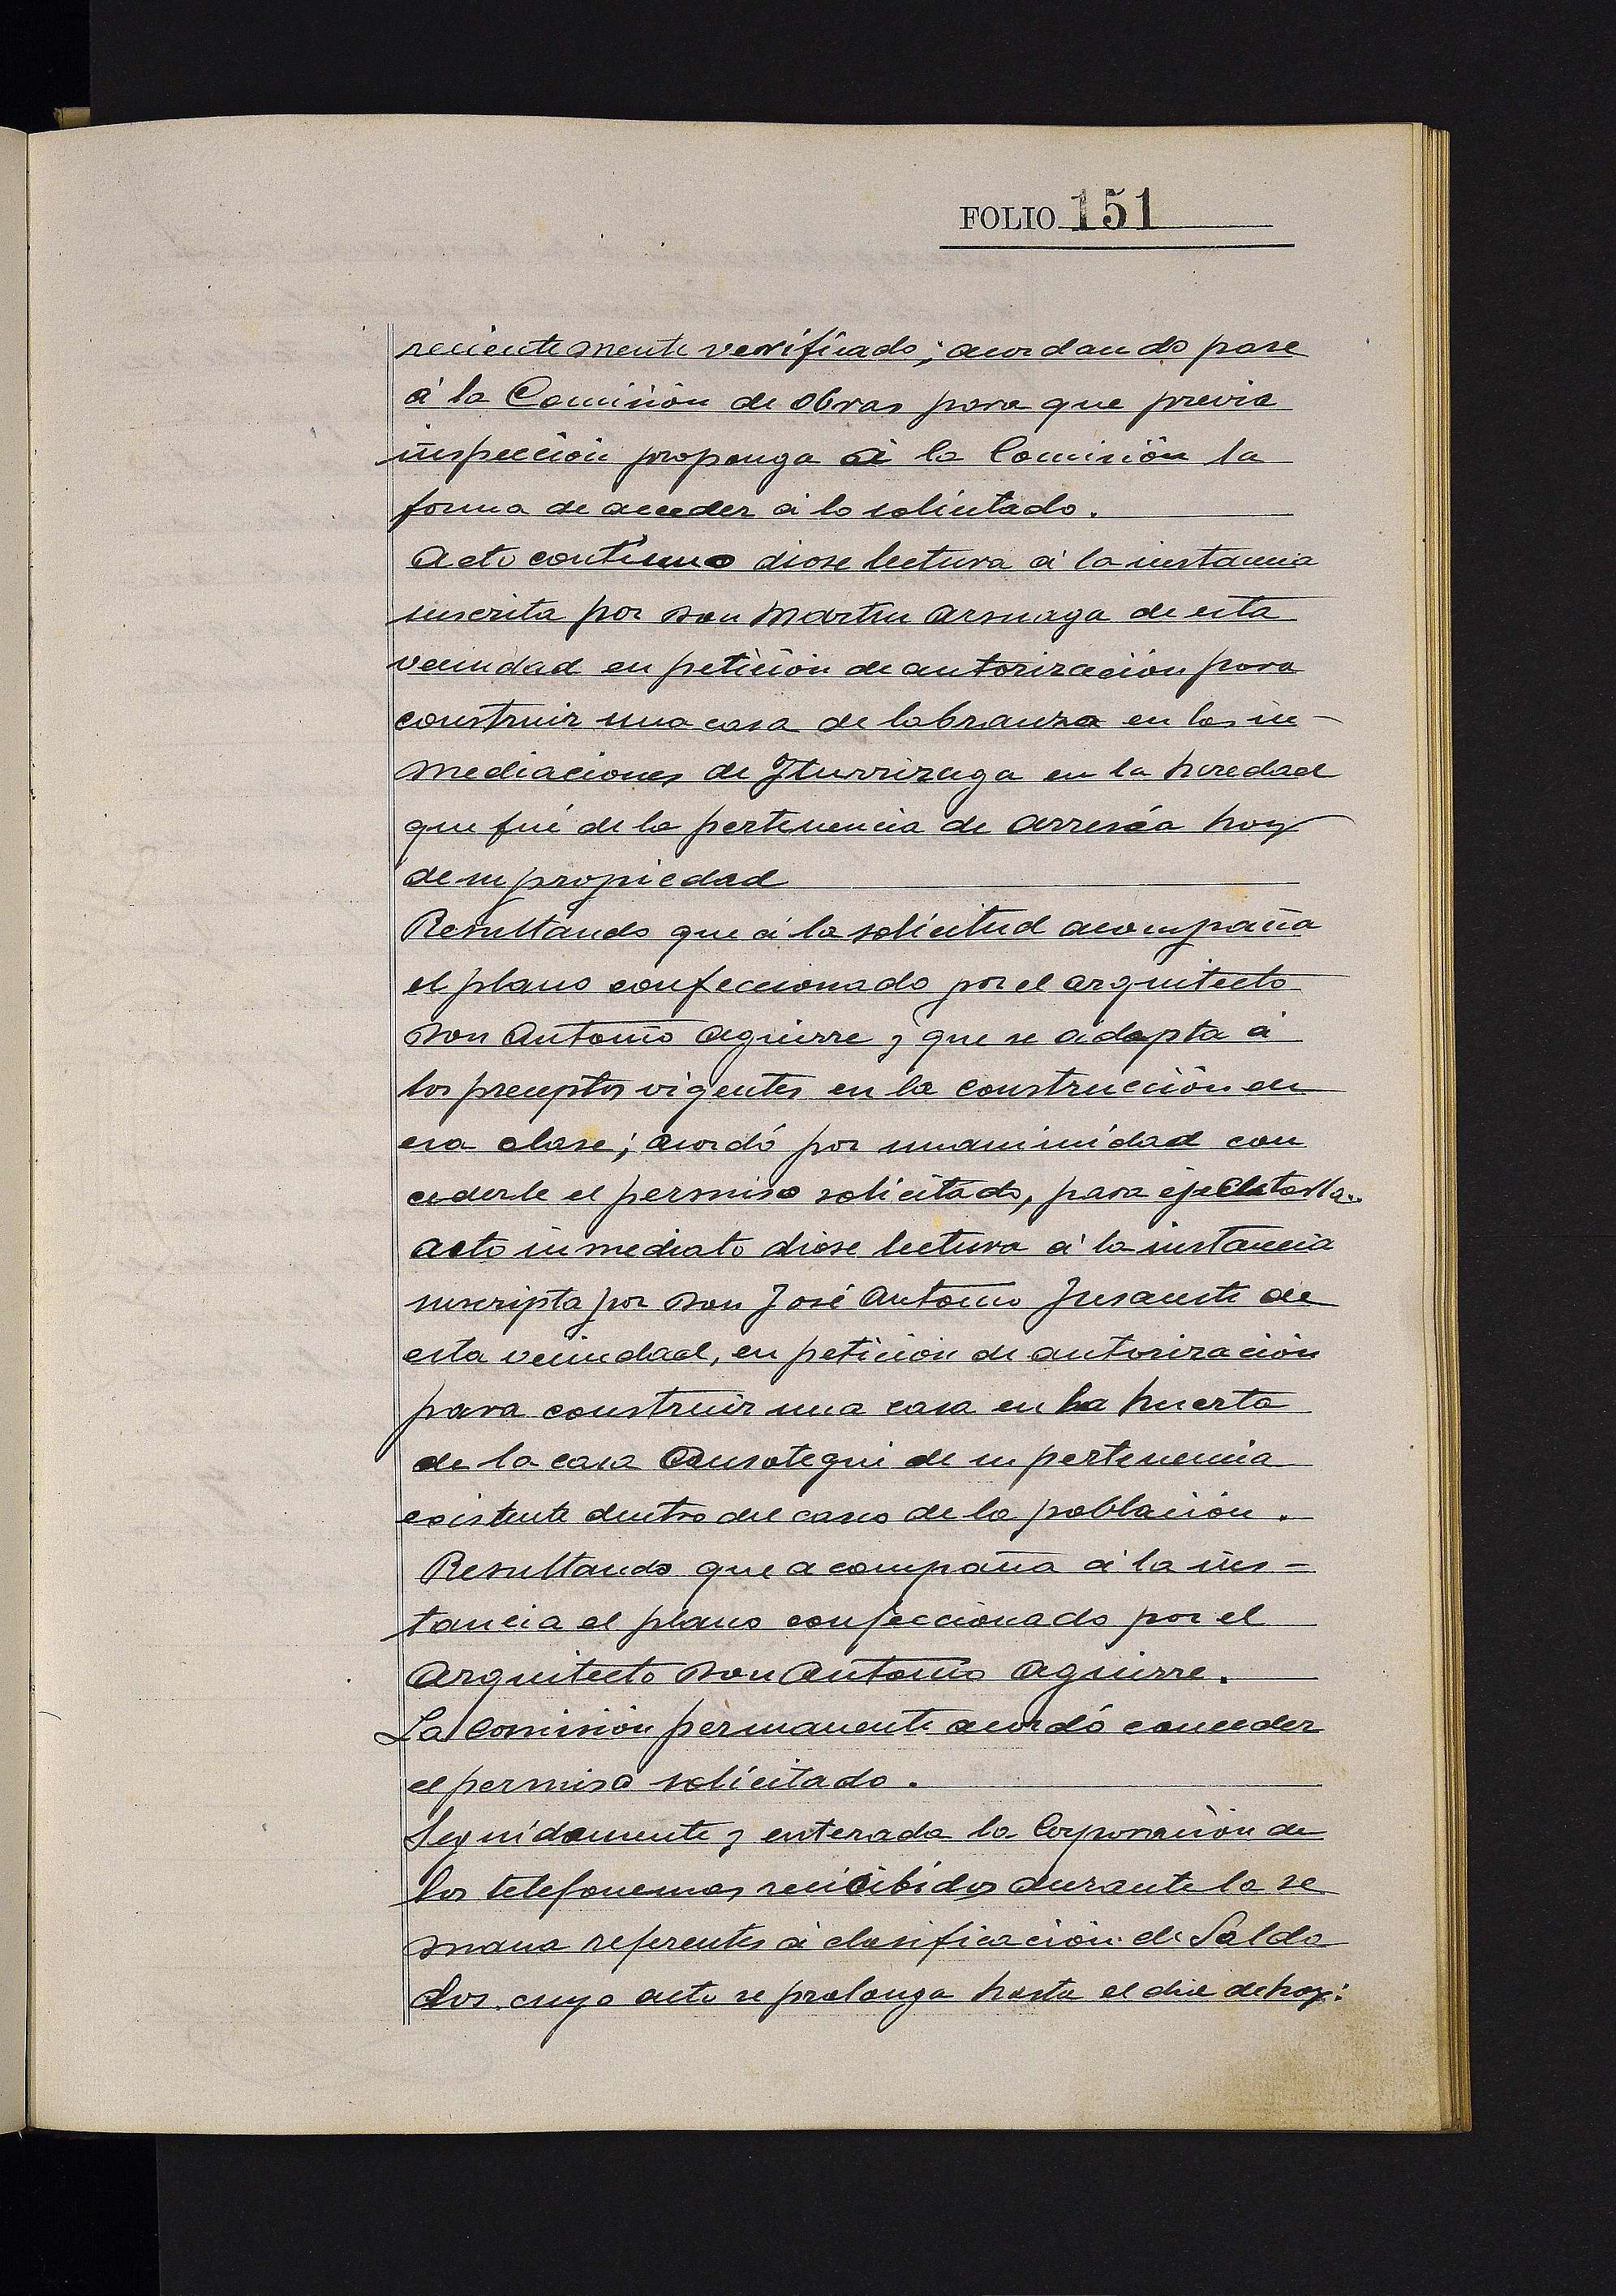 FOLIO 151
recientemente verificado; acordando pase
á la Comisión de Obras para que previa
inspección proponga á la Comisión la
forma de acceder á lo solicitado.
Acto contínuo diose lectura á la instancia
suscrita por Don Martin Arsuaga de esta
vecindad en petición de autorización para
construir una casa de labranza en las in-
mediaciones de Iturrizaga en la heredad
que fué de la pertenencia de hoy
de su propiedad
Resultando que á la solicitud acompaña
el plano confeccionado por el arquitecto
Don Antonio Aguirre y que se adapta á
los preceptos vigentes en la construcción en
esa clase; acordó por unanimidad con
cederle el permiso solicitado, para ejecutarla.
Acto inmediato diose lectura á la instancia
suscripta por Don José Antonio Jusausti de
esta vecindad, en petición de autorización
para construir una casa en la huerta
de la casa Ausotegui de su pertenencia
existente dentro del casco de la población.
Resultando que acompaña á la ins-
tancia el plano confeccionado por el
Arquitecto Don Antonio Aguirre.
La Comisión permanente acordó conceder
el permiso solicitado.
Seguidamente y enterada la Corporación de
los telefonemas recibidos durante la se
mana referentes á clasificación de Solda
dos cuyo acto se prolonga hasta el dia de hoy: